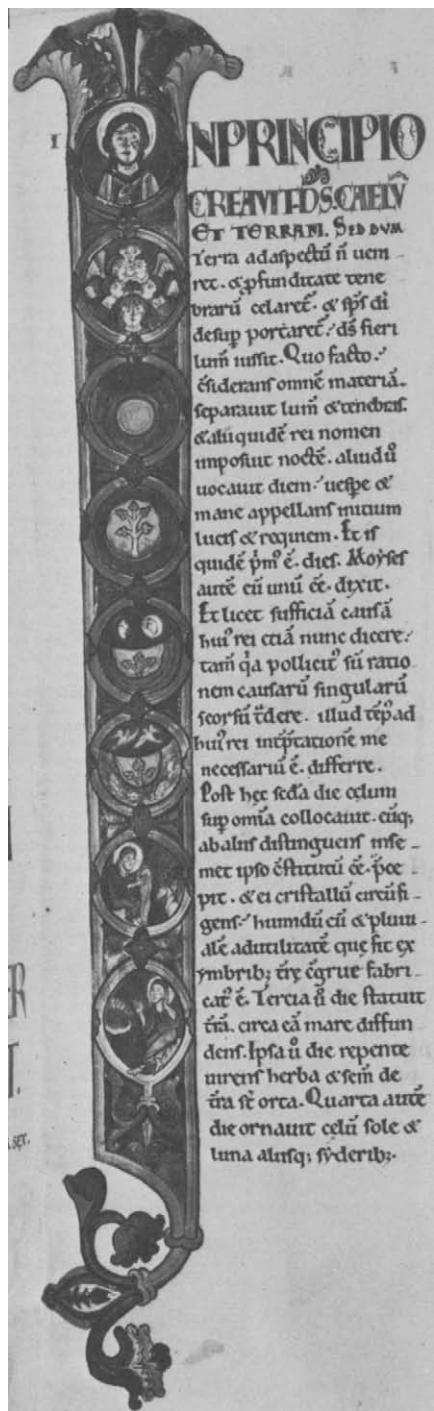 I
NPRINCIPIO
CREAVIT DS. CAELV̄
ET TERRAM. SED DUM
Terra ad aspectū n̄ uem
ret. & pfunditate tene
brarū celaret̄. & sp̄s dī
desup portaret̄. ds̄ fieri
lum̄ iussit. Quo facto.
c̄siderans omnē materiā.
separauit lum̄ & tenebras.
& alii quidē rei nomen
imposuit noctē. aliud u̓
uocauit diem. uesp̄e &
mane appellans initium
lucis & requiem. Et is
quidē p̓m̓ ē. dies. Moyses
autē eū unū eē. dixit.
Et licet sufficiā causā
hui̓ rei etiā nunc dicere.
tam̄ q̓a pollicit̓ sū ratio
nem causarū singularū
seorsū t̄dere. illud tēp̓ ad
hui̓ rei int̄p̄tationē me
necessariū ē. differre.
Post hęc sc̄da die cęlum
sup om̄ia collocauit. eūq;
ab aliis distinguens in se
met ipso c̄stitutū eē. p̄ce
pit. & ei cristallū circūfi
gens. humidū eū & pluui
alē ad utilitatē quę fit ex
ymbrib; t̄rę c̄grue fabri
cat̓ ē. Tercia u̓ die statuit
t̄rā. circa eā mare diffun
dens. Ipsa u̓ die repente
uirens herba & sem̄ de
t̄ra st̄ orta. Quarta autē
die ornauit cęlū sole &
luna aliisq; syderib;.